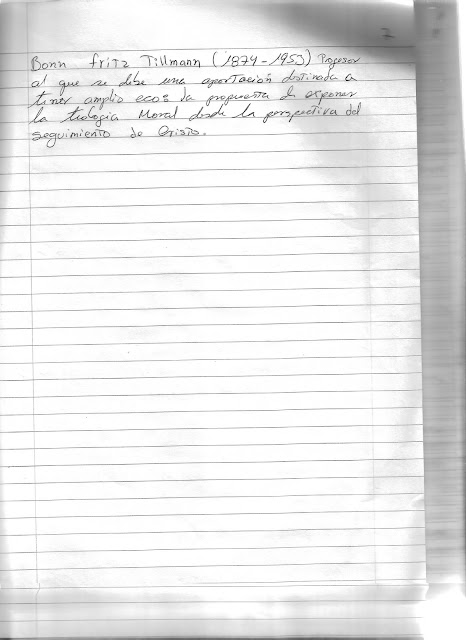 7
Bonn fritz Tillmann (1874-1953) Profesor
al que se debe una aportación destinada a
tener amplio eco: la propuesta de exponer
la teología Moral desde la perspectiva del
seguimiento de Cristo.